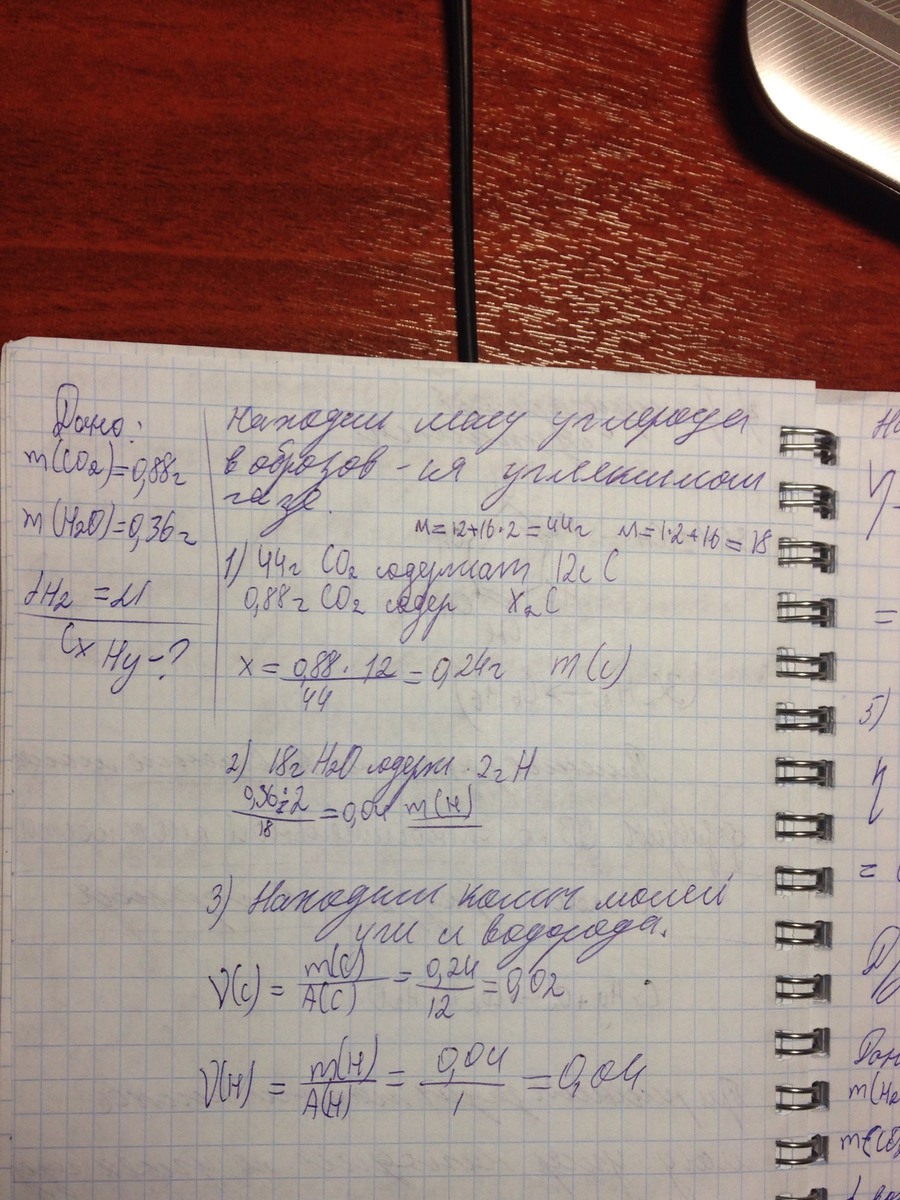 Дано:
m(CO₂)=0,88г
m(H₂O)=0,36г
dH₂ = 21
CxHy-?
Находим масу углерода
в образов-ся углекислом
газе.
M=12+16·2=44г M=1·2+16=18
1) 44г CO₂ содержат 12г C
0,88г CO₂ содер X г C
x = 0,88·12/44 = 0,24г m(C)
2) 18г H₂O содерж. 2г H
0,36·2/18 = 0,04 m(H)
3) Находим колич молей
угл и водорода.
ν(C) = m(C)/A(C) = 0,24/12 = 0,02
ν(H) = m(H)/A(H) = 0,04/1 = 0,04
5)
=
= 
Дан
m(H₂
m(CO₂